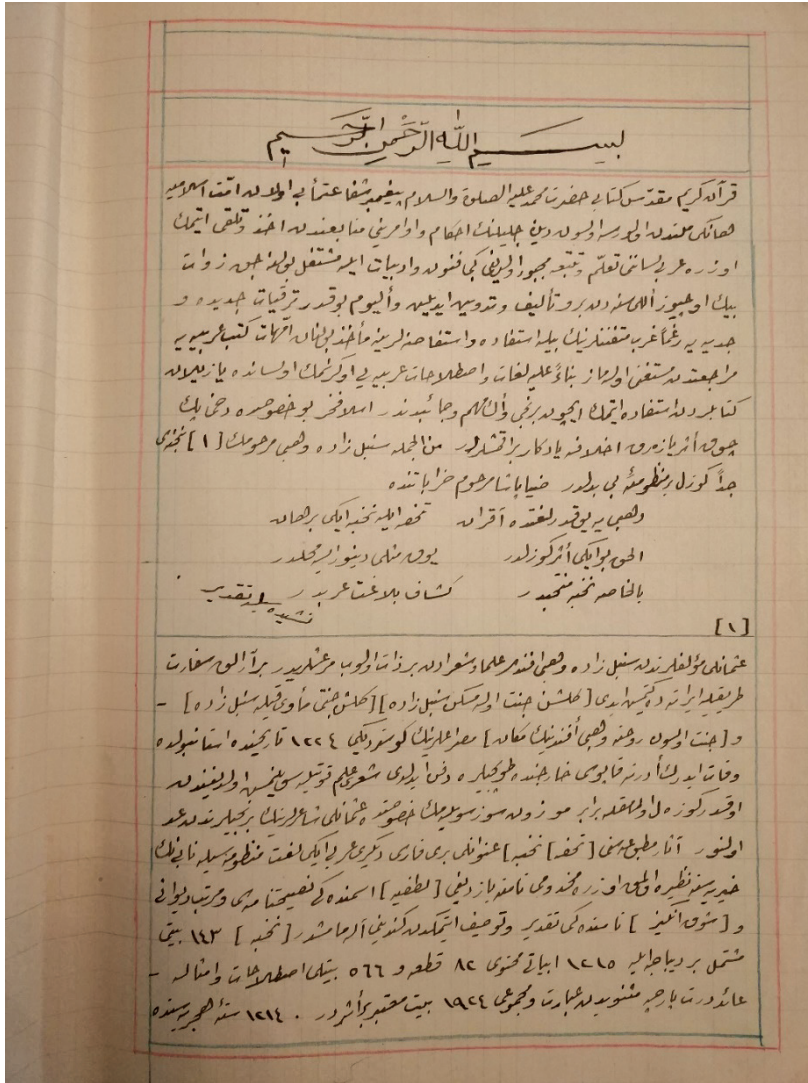 بسم الله الرحمن الرحيم
قرآن كريم مقدس كتابى حضرت محمد عليه الصلوة والسلام پيغمبر شفاعتمأبى اولان امت اسلاميه
هانكى ملتدن اولورسه اولسون دين جليلنك احكام و اوامرينى منابعندن اخذ و تلقى ايتمك
اوزره عربى لسانى تعلم و تتبعه مجبور اولديغى كبى فنون و ادبيات ايله مشتغل بولنه جق ذوات
بيك اوچيوز اللى سنه دن برو تأليف و تدوين ايديلن واليوم بوقدر ترقيات جديده و
جديه يه رغماً غرب متفننلرينك بيله استفاده و استفاضه لرينه مأخذ بولنان امهات كتب عربيه يه
مراجعتدن مستغنى اوله ماز بناءً عليه لغات و اصطلاحات عربيه يى اوكرنمك او لسانده يازيلان
كتابلردن استفاده ايتمك ايچون برنجى والك مهم وجائبدندر اسلافمز بو خصوصده دخى پك
چوق أثر يازه رق اخلافه يادكار براقمشلردر من الجمله سنبل زاده وهبى مرحومك [١] نخبه سى
جداً كوزل بر منظومۀ بى بدلدر ضيا پاشا مرحوم خراباتنده
وهبى يه يوقدر لغتده آقران تحفه ايله نخبه ايكى برهان
الحق بو ايكى أثر كوزلدر يوق مثلى دينور ايسه محلدر
بالخاصه نخبه منتخبدر كشاف بلاغت عربدر
[١]
عثمانلى مؤلفلرندن سنبل زاده وهبى افندى علما و شعرادن بر ذات اولوب مرعشليدر بر آرالق سفارت
طريقيله ايرانه ده كيتمش ايدى [كلشن جنت اوله مسكن سنبل زاده] [كلشن جنتى مأوى قيله سنبل زاده] -
و [جنت اولسون روحنه وهبى أفندينك مكان] مصراعلرينك كوستردیكى ١٢٢٤ تاريخنده استانبولده
وفات ايدرك أدرنه قاپوسى خارجنده طوپجيلره دفن ايدلدى شعرى علم قوتيله سويلمش اولديغندن
اوقدر كوزل اولمامقله برابر موزون سوز سويلمك خصوصنده عثمانلى شاعرلرينك برنجيلرندن عد
اولنور آثار مطبوعه سى [تحفه] [نخبه] عنوانلى برى فارسى ديكرى عربى ايكى لغت منظومه سيله نابى نك
خيريه سنه نظيره اولمق اوزره مخدومى نامنه يازديغى [لطفيه] اسمنده كى نصيحتنامه سى و مرتب ديوانى
و [شوق انكيز] نامنده كى تقدير و توصيف ايتمكدن كندينى آله مامشدر [نخبه] ١٤٣ بيتى
مشتمل بر ديباجه ايله ١٢١٥ ابياتى محتوى ٨٢ قطعه و ٥٦٦ بيتلى اصطلاحات و امثاله -
عائد درت پارچه مثنويدن عبارت و مجموعى ١٩٢٤ بيت معتبر بر أثردر . ١٢١٤ سنۀ هجريه سنده